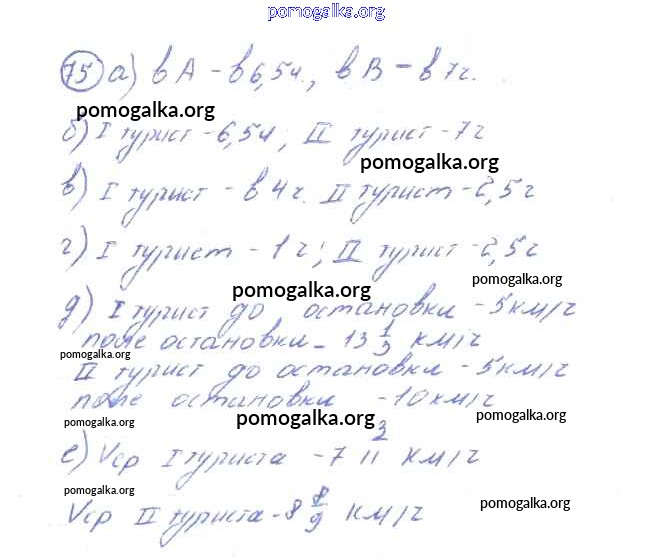 pomogalka.org
75) а) в А – в 6,5ч., в В – в 7ч.
pomogalka.org
б) I турист – 6,5ч; II турист – 7ч
pomogalka.org
в) I турист – в 4ч. II турист – 2,5ч
г) I турист – 1ч; II турист – 2,5ч
pomogalka.org
pomogalka.org
д) I турист до остановки – 5км/ч
после остановки – 13 1/3 км/ч
pomogalka.org
II турист до остановки – 5км/ч
после остановки – 10км/ч
pomogalka.org
pomogalka.org
pomogalka.org
е) Vср I туриста – 7 3/11 км/ч
pomogalka.org
pomogalka.org
Vср II туриста – 8 8/9 км/ч